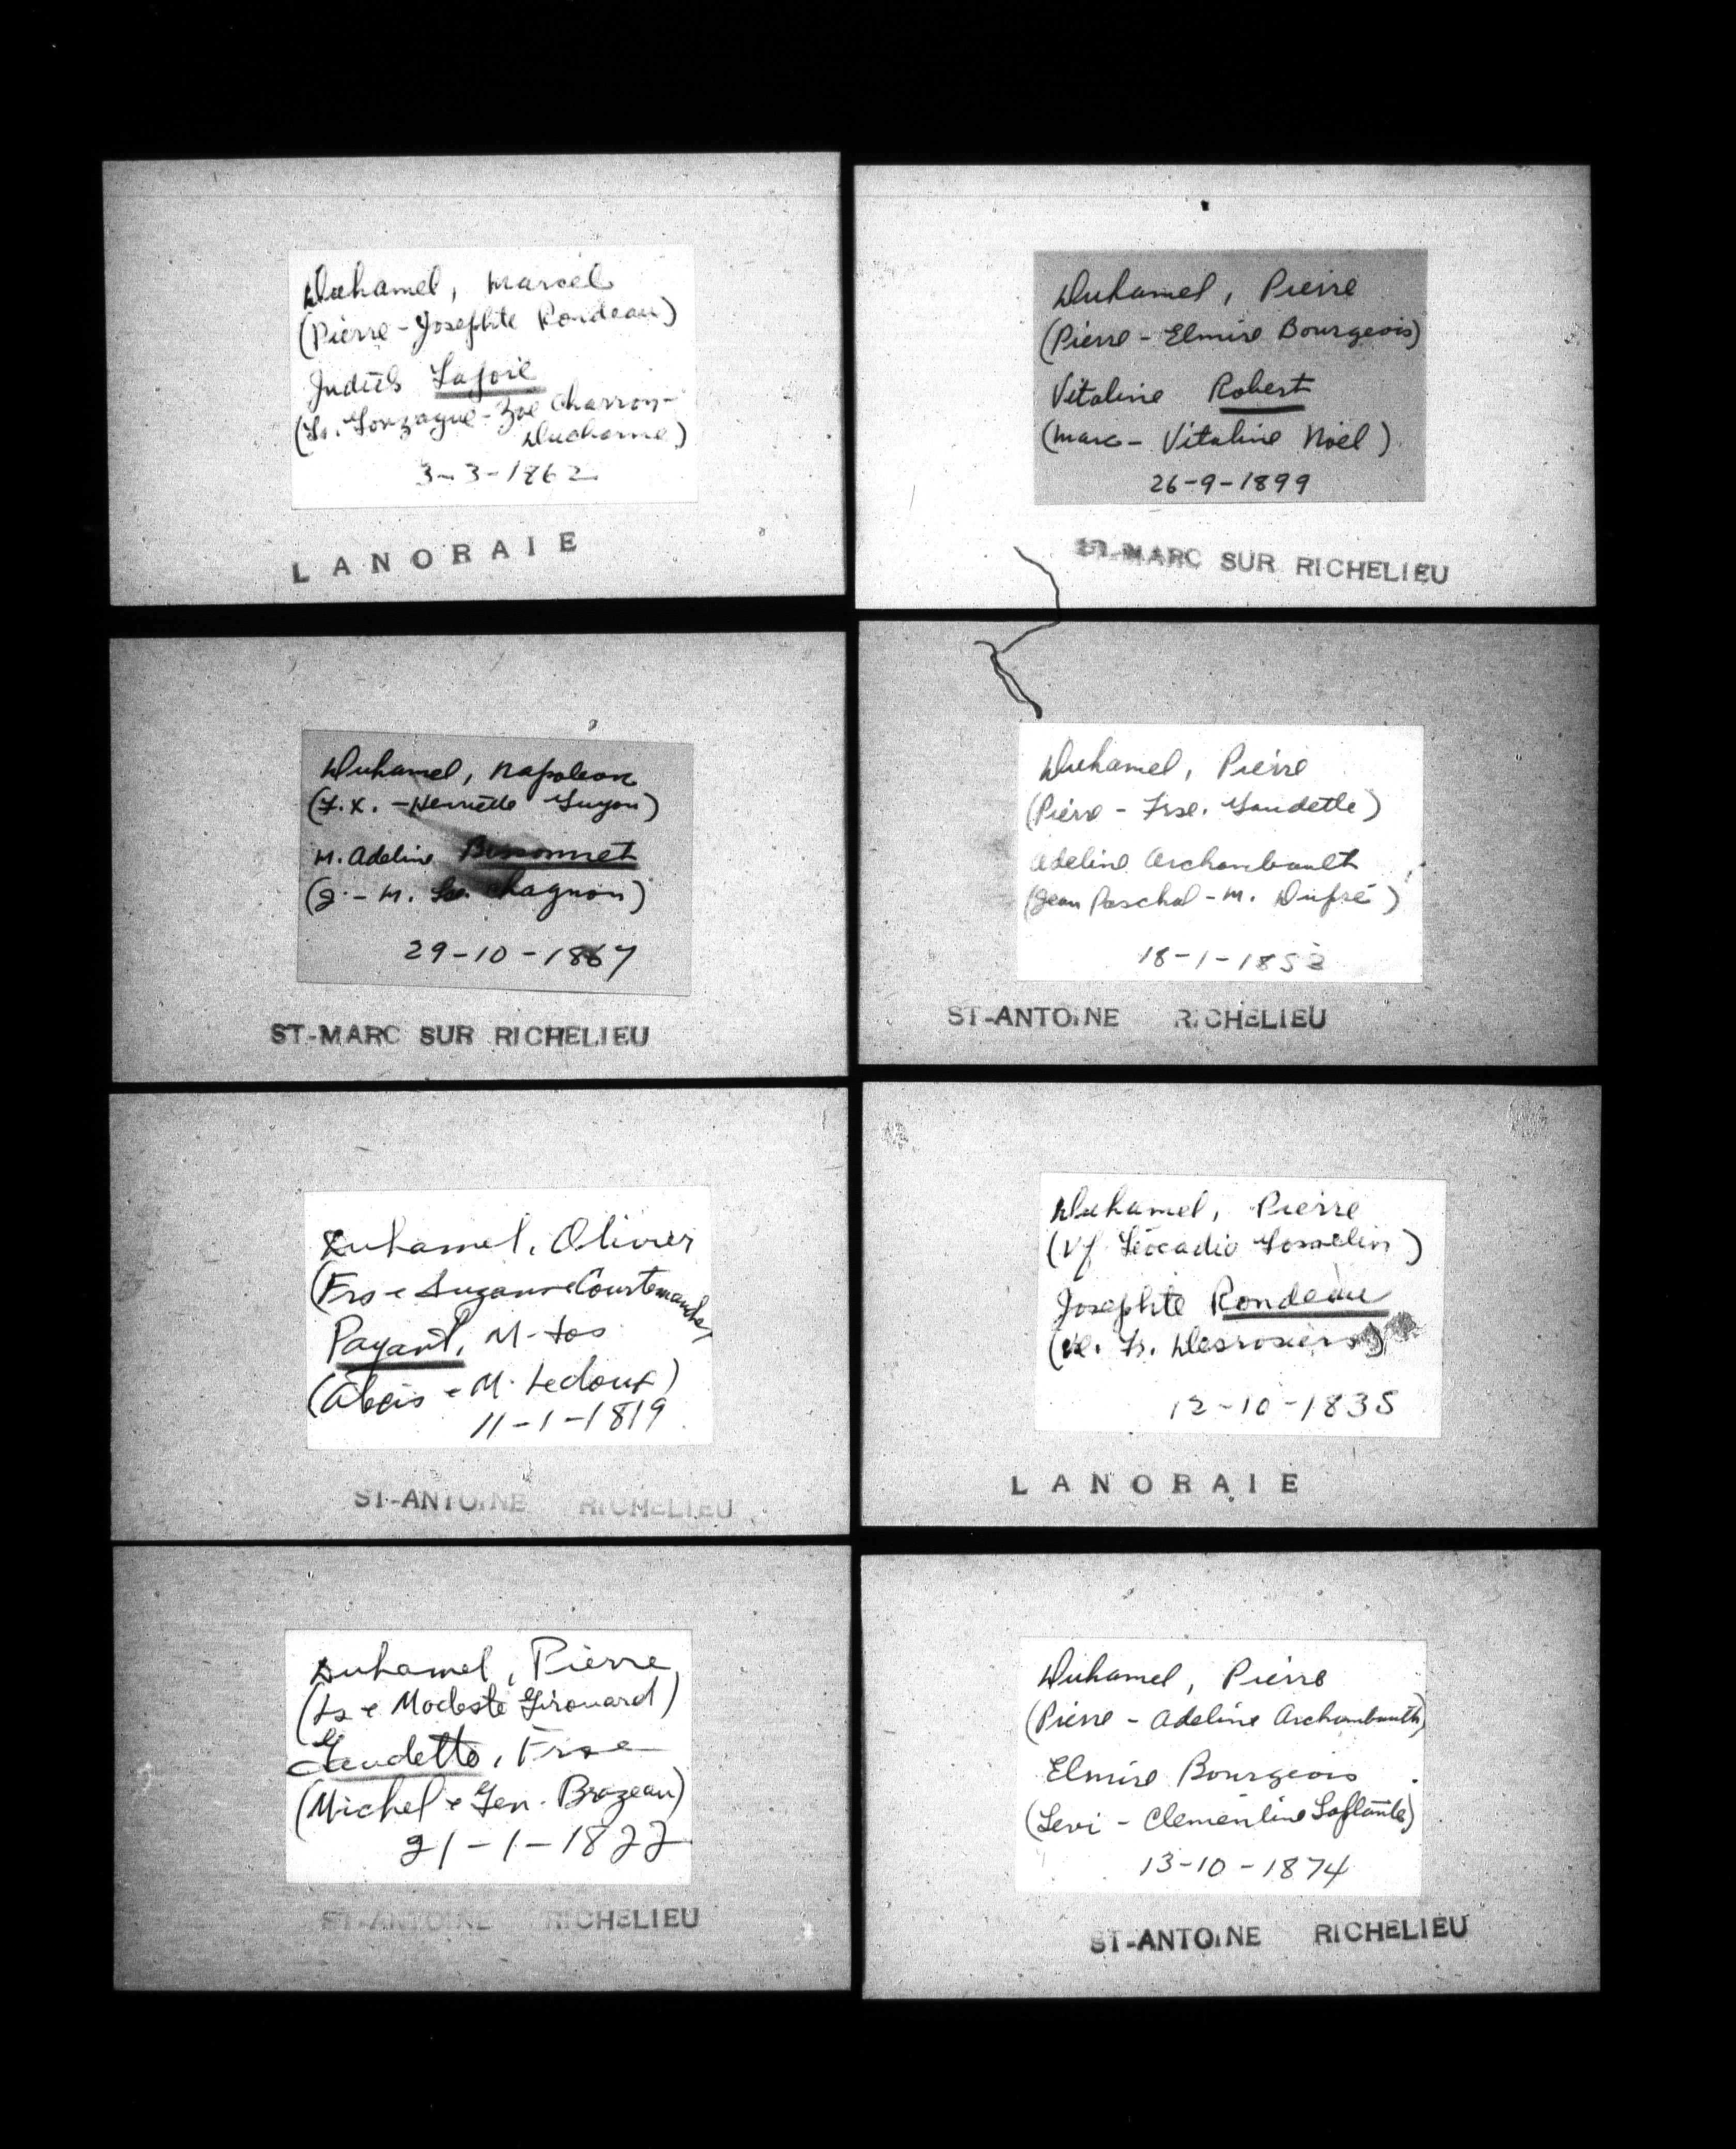 Duhamel, Marcel
(Pierre - Josephte Rondeau)
Judith Lajoie
(Ls. Gonzague - Zoé Charron-
Ducharme)
3-3-1862
LANORAIE
Duhamel, Pierre
(Pierre - Elmire Bourgeois)
Vitaline Robert
(Marc - Vitaline Noël)
26-9-1899
ST-MARC SUR RICHELIEU
Duhamel, Napoleon
(F.X. - Henriette Guyon)
M. Adeline Bissonnet
(J. - M. Ls. Chagnon)
29-10-1867
ST-MARC SUR RICHELIEU
Duhamel, Pierre
(Pierre - Frse. Gaudette)
Adeline Archambault
(Jean Paschal - M. Dufré)
18-1-185
ST-ANTOINE RICHELIEU
Duhamel, Olivier
(Frs e Suzanne Courtemanche)
Payant, M-Jos
(Alexis e M. Ledoux)
11-1-1819
ST-ANTOINE RICHELIEU
Duhamel, Pierre
(Vf Léocadie Gosselin)
Josephte Rondeau
(Ve. Ls. Desrosiers)
12-10-1835
LANORAIE
Duhamel, Pierre
(Ls e Modeste Girouard)
Gaudette, Frse
(Michel e Gen. Brazeau)
21-1-1822
ST-ANTOINE RICHELIEU
Duhamel, Pierre
(Pierre - Adeline Archambault)
Elmire Bourgeois
(Levi - Clementine Laflamle)
13-10-1874
ST-ANTOINE RICHELIEU